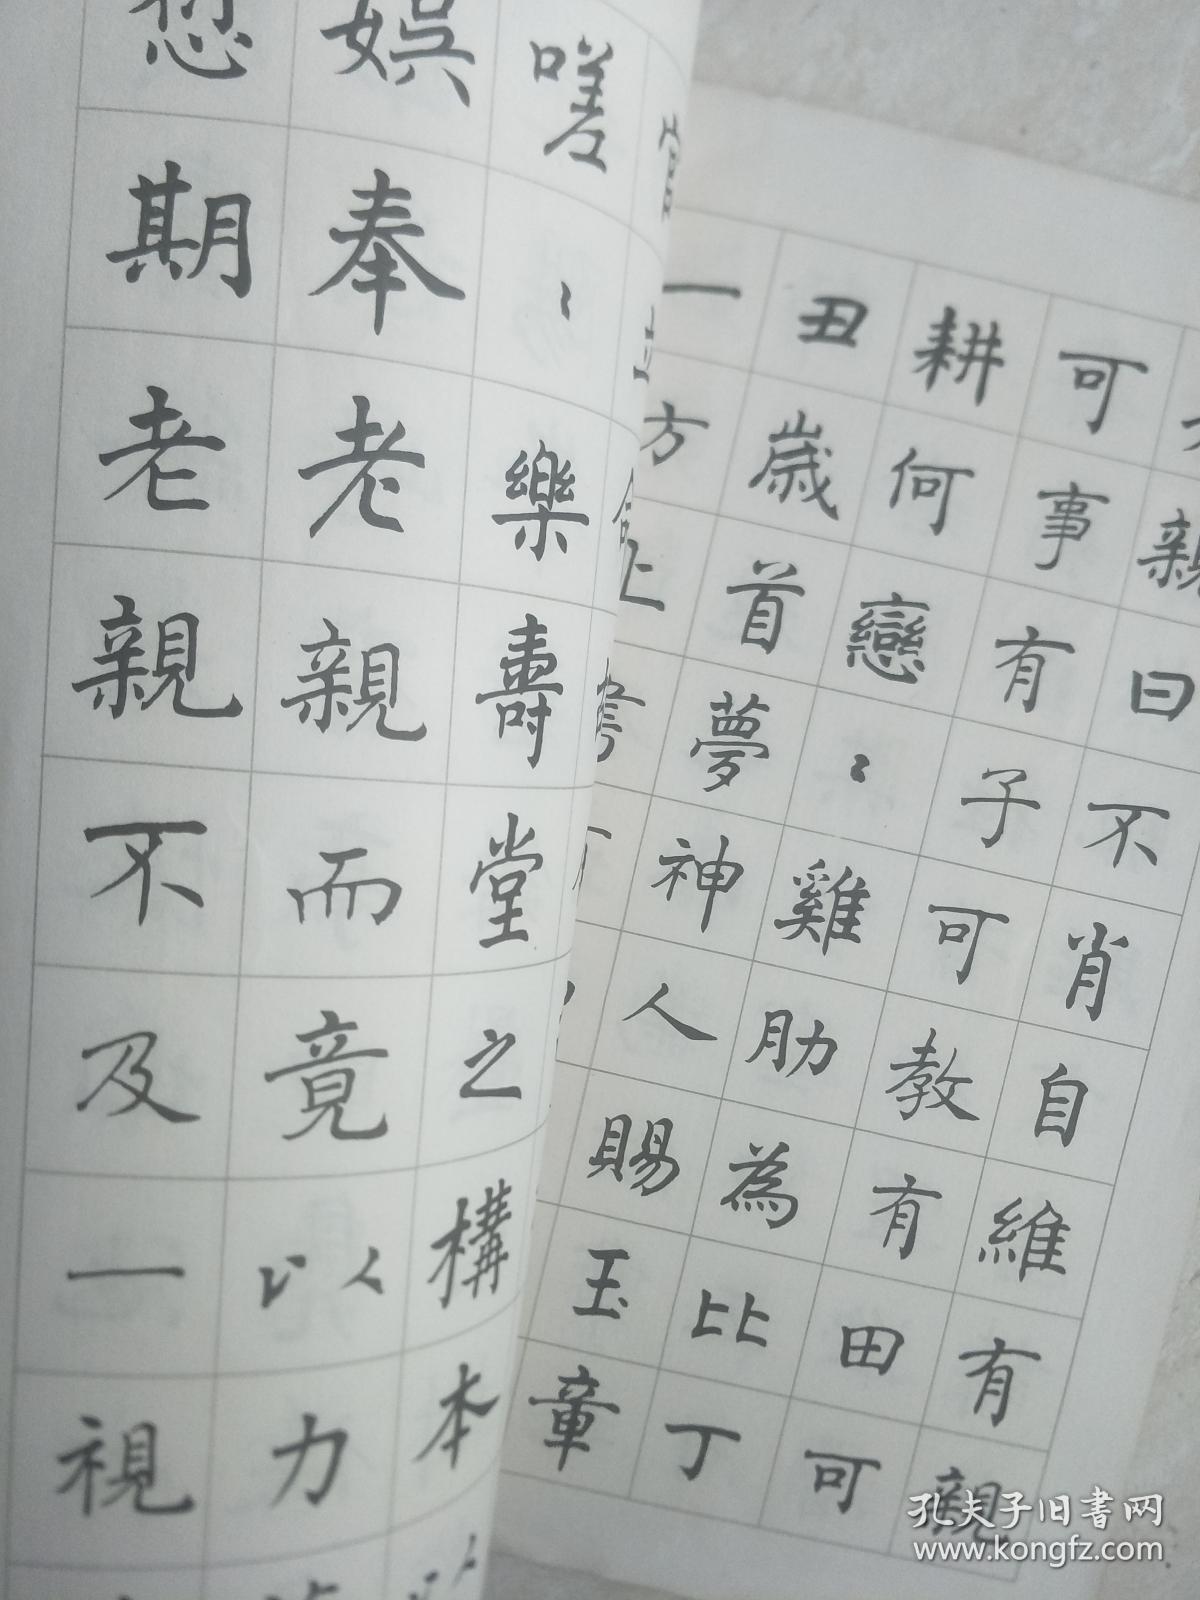 親曰不肖自維有親
可事有子可教有田可
耕何戀〻雞肋為比丁
丑歲首夢神人賜玉章
一方上
嗟〻樂壽堂之構本
娛奉老親而竟以力
愆期老親不及一視
孔夫子旧書网
www.kongfz.com